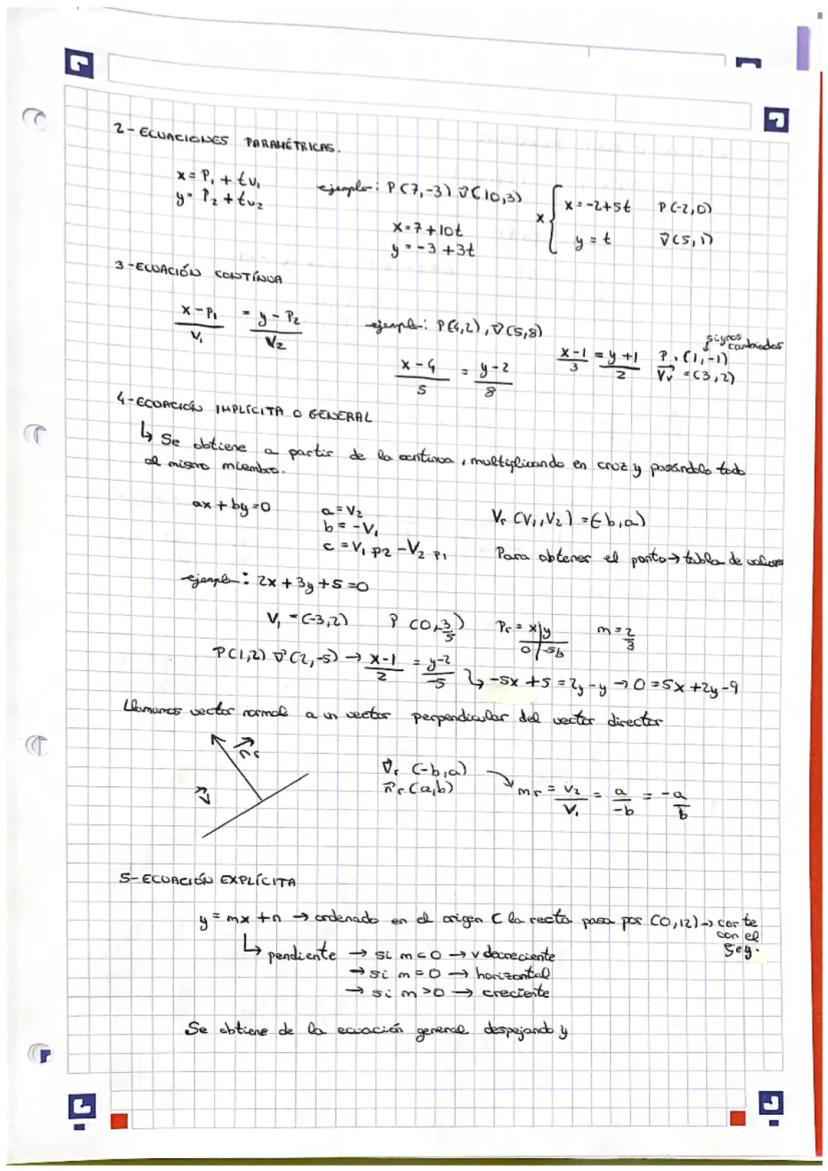 2-ECUACIONES PARAMÉTRICAS.
x = P₁ + tv₁
y = P₂ + tv₂
ejemplo: P(7,-3) v⃗(10,3)
x = 7 + 10t
y = -3 + 3t
x { x = -2+5t P(-2,0)
y = t v⃗(5,1)
3-ECUACIÓN CONTÍNUA
(x-P₁)/V₁ = (y-P₂)/V₂
ejemplo: P(4,2), v⃗(5,8)
(x-4)/5 = (y-2)/8
signos cambiados
(x-1)/3 = (y+1)/2 P, (1,-1)
V⃗r = (3,2)
4-ECUACIÓN IMPLÍCITA O GENERAL
↳ Se obtiene a partir de la continua, multiplicando en cruz y pasándolo todo
al mismo miembro.
ax + by = 0
a = V₂
b = -V₁
c = V₁ P₂ - V₂ P₁
Vr (V₁,V₂) = (-b,a)
Para obtener el punto → tabla de valores
ejemplo: 2x + 3y + 5 = 0
V₁ = (-3,2) P (0,-3/5) Pr = x|y m = 2/3
0|-5/3
P(1,2) v⃗(2,-5) → (x-1)/2 = (y-2)/-5 ↳ -5x + 5 = 2y - y → 0 = 5x + 2y - 9
Llamamos vector normal a un vector perpendicular del vector director
n⃗r
v⃗r (-b,a)
n⃗r (a,b)
mr = V₂/V₁ = a/-b = -a/b
5-ECUACIÓN EXPLÍCITA
y = mx + n → ordenado en el origen C la recta pasa por (0,12) → corte
con el
↳ pendiente → si m < 0 → v decreciente
→ si m = 0 → horizontal
→ si m > 0 → creciente
Se obtiene de la ecuación general despejando y